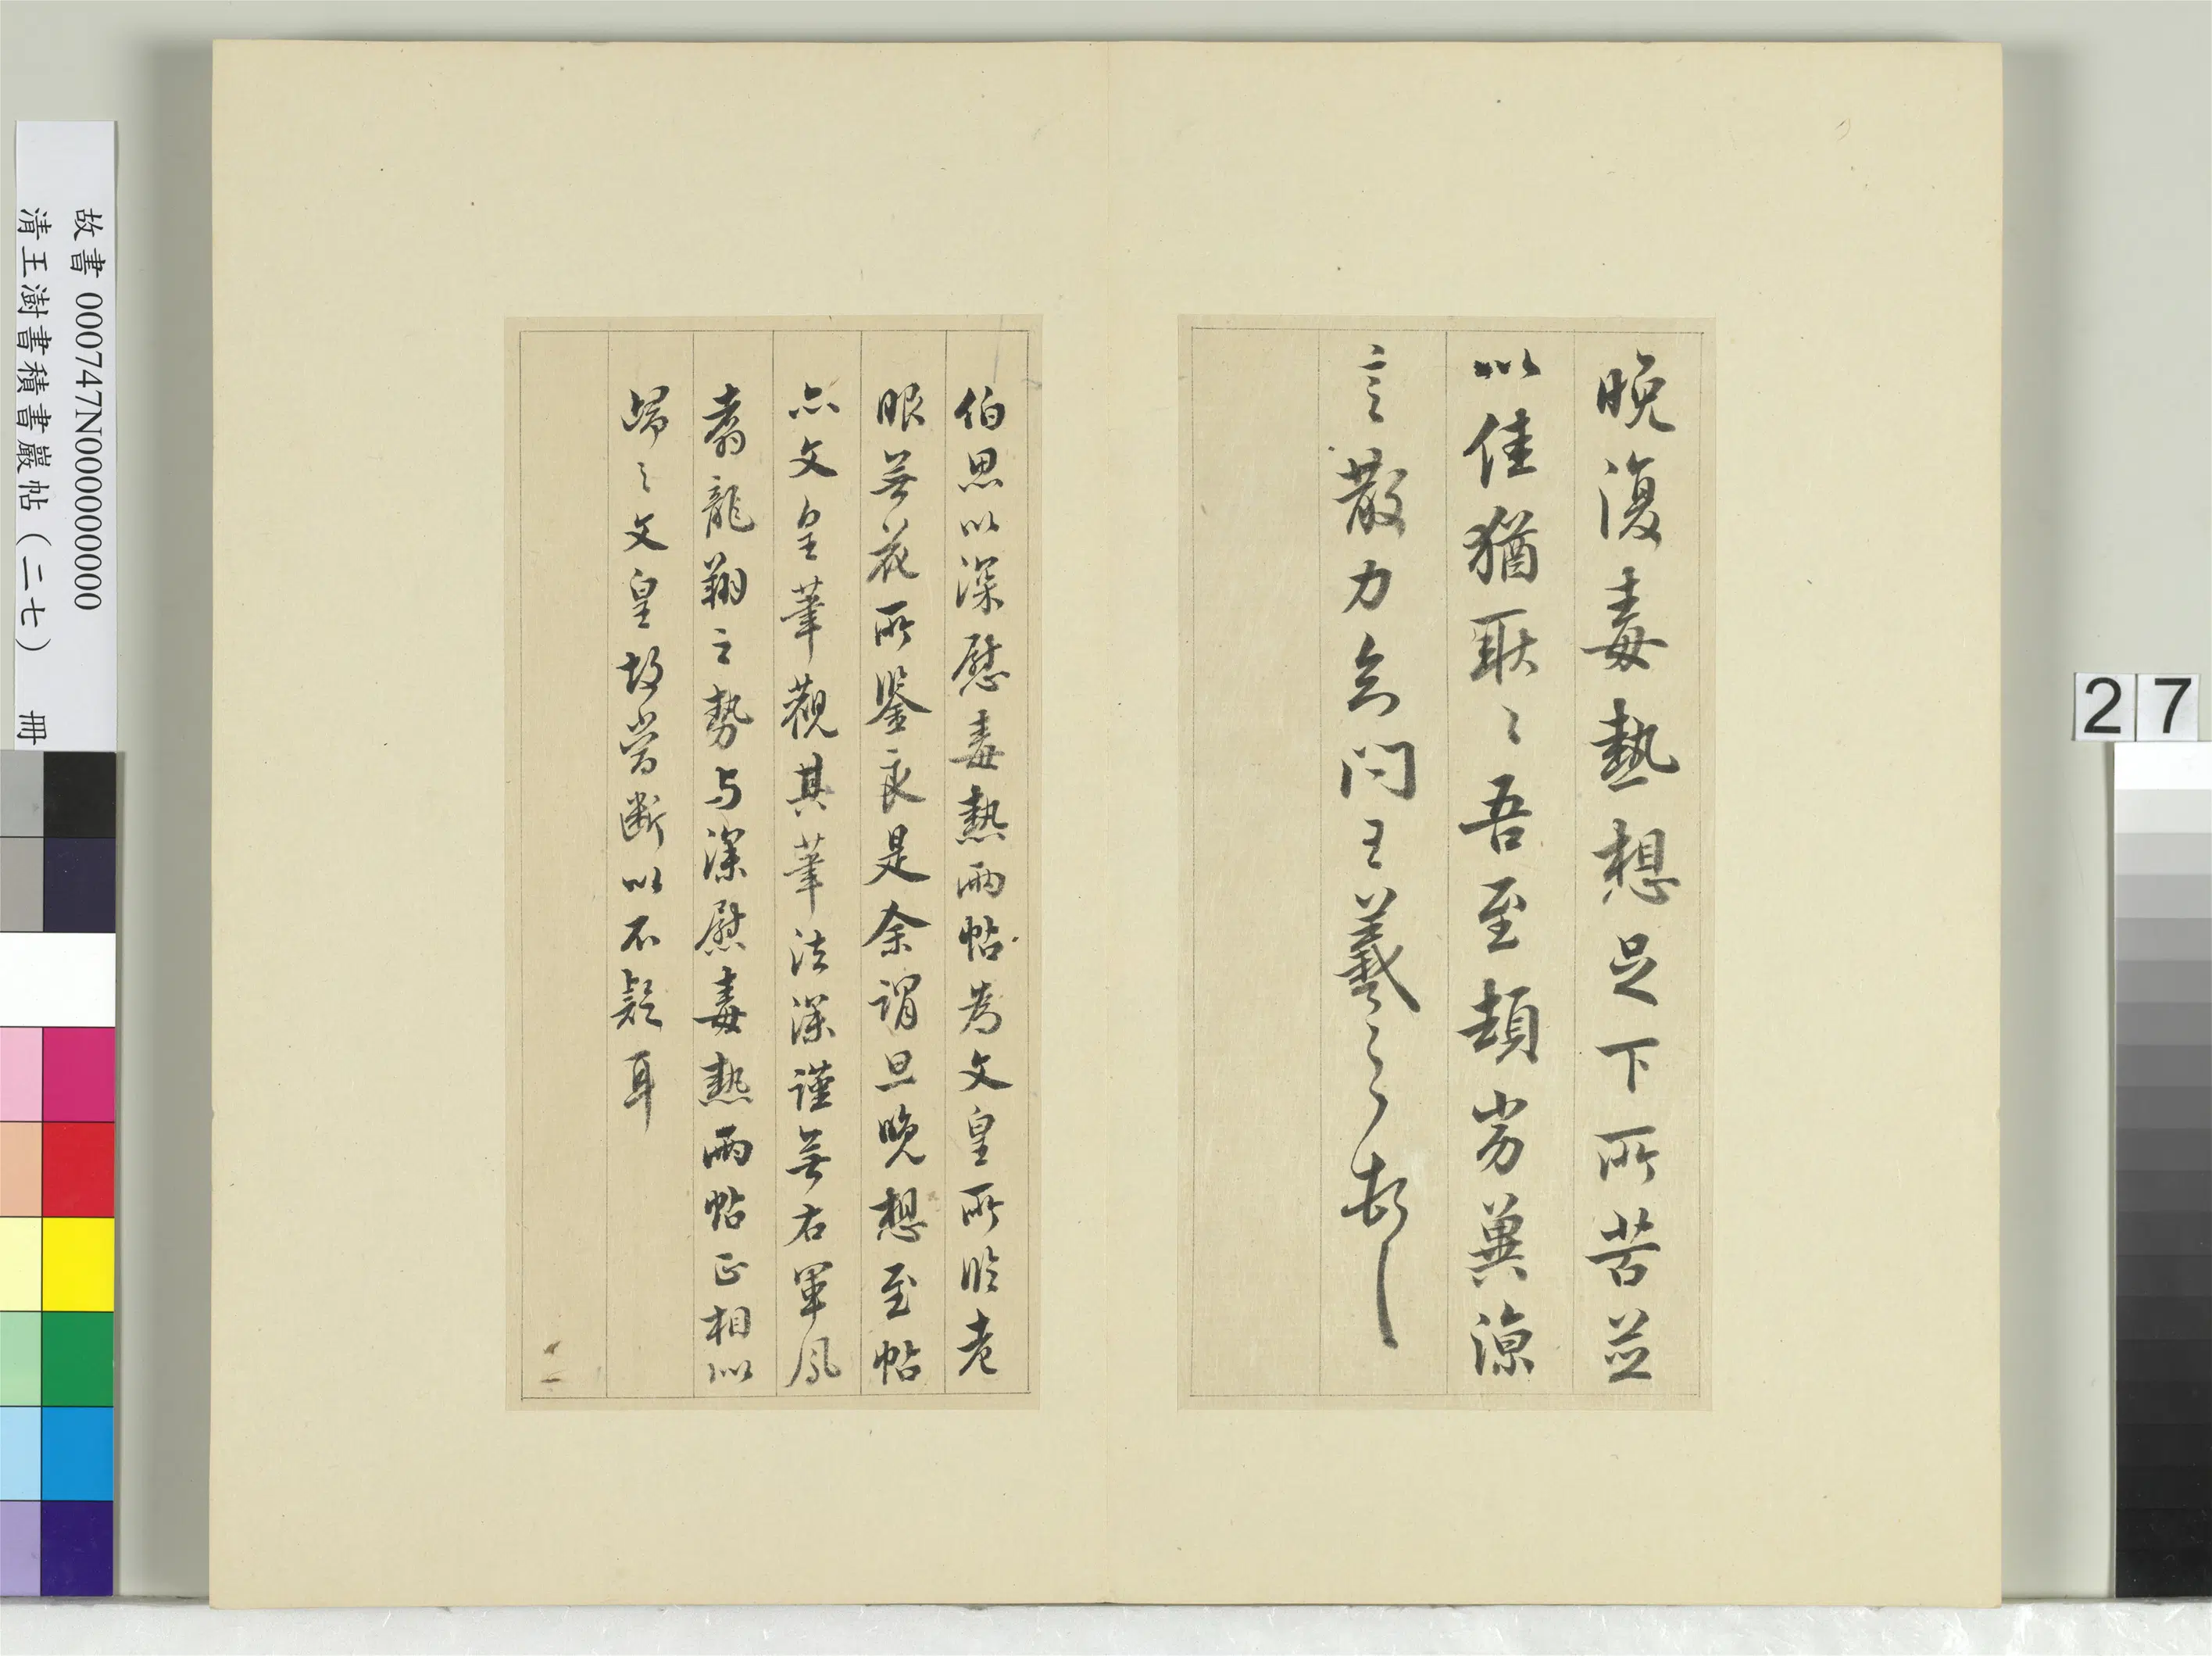 晚復毒熱想足下所苦並
以佳猶耿〻吾至頓劣冀涼
言散力知問王羲之頓
伯思以深慰毒熱兩帖為文皇所臨老
眼無花所鑒良是余謂旦晚想至帖
亦文皇筆觀其筆法深謹無右軍鳳
翥龍翔之勢与深慰毒熱兩帖正相似
歸之文皇故當斷以不疑耳
故書 000747N000000000
清王澍書積書巖帖(二七) 冊
27